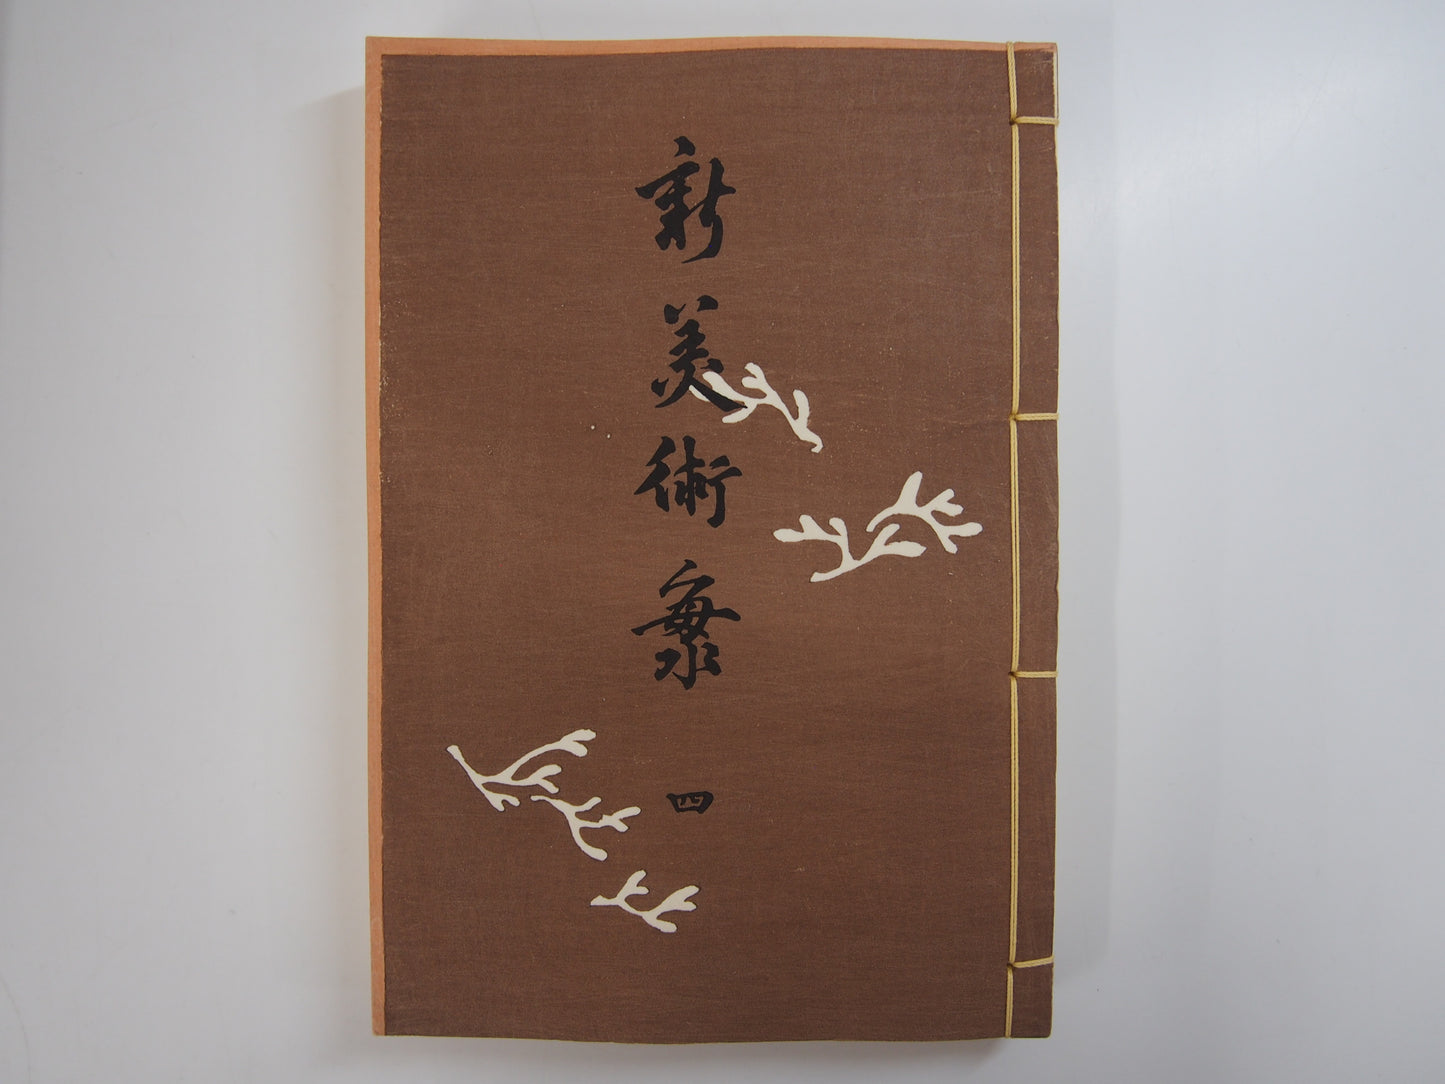 新美術海 四